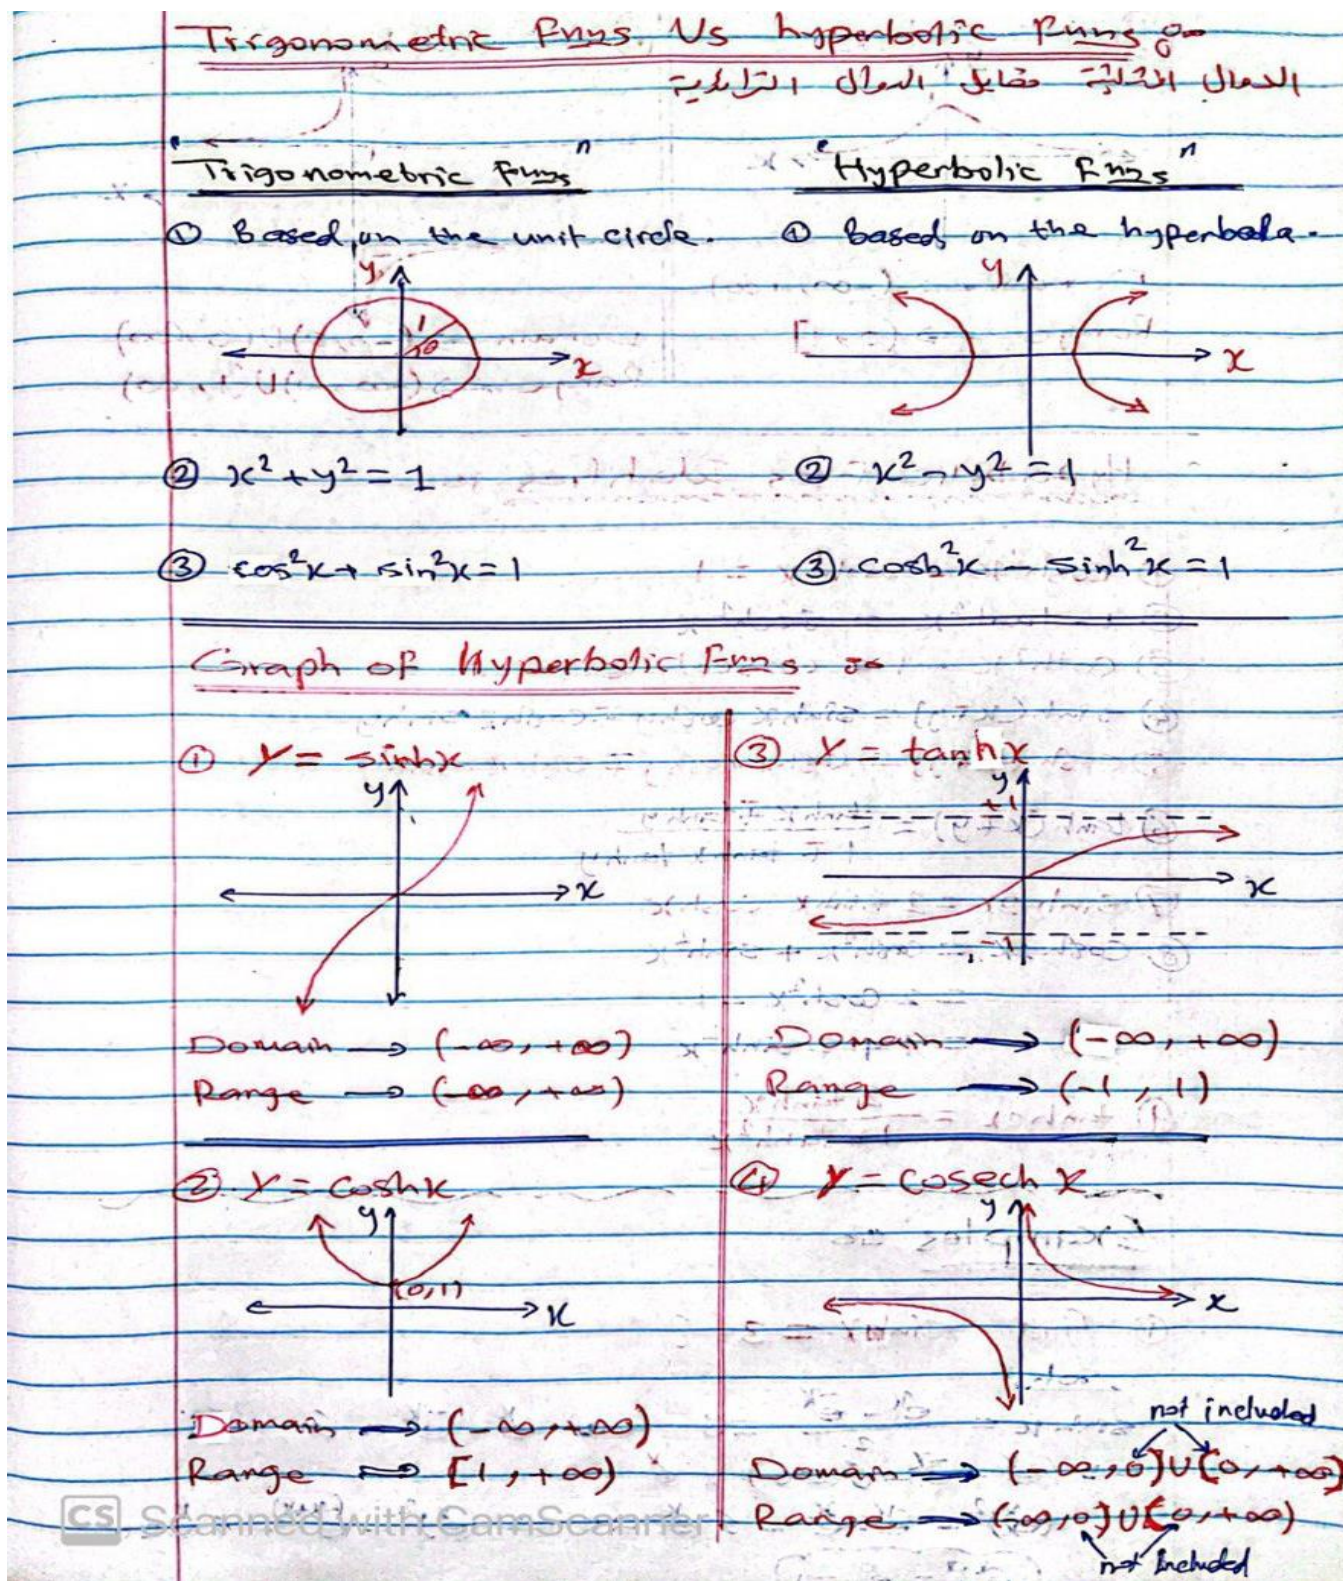 Trigonometric Funs Vs hyperbolic Funs
الدوال المثلثية مقابل الدوال الزائدية
"Trigonometric Funs"
① Based on the unit circle.
y
1
θ
x
② x² + y² = 1
③ cos²x + sin²x = 1
"Hyperbolic Funs"
① Based on the hyperbola.
y
x
② x² - y² = 1
③ cosh²x - sinh²x = 1
Graph of Hyperbolic Funs
① y = sinhx
y
x
Domain → (-∞, +∞)
Range → (-∞, +∞)
② y = coshx
y
(0,1)
x
Domain → (-∞, +∞)
Range ⇒ [1, +∞)
③ y = tanhx
y
+1
x
-1
Domain → (-∞, +∞)
Range → (-1, 1)
④ y = cosech x
y
x
not included
Domain → (-∞, 0] U [0, +∞]
Range → (-∞, 0] U [0, +∞)
not included
CS Scanned with CamScanner